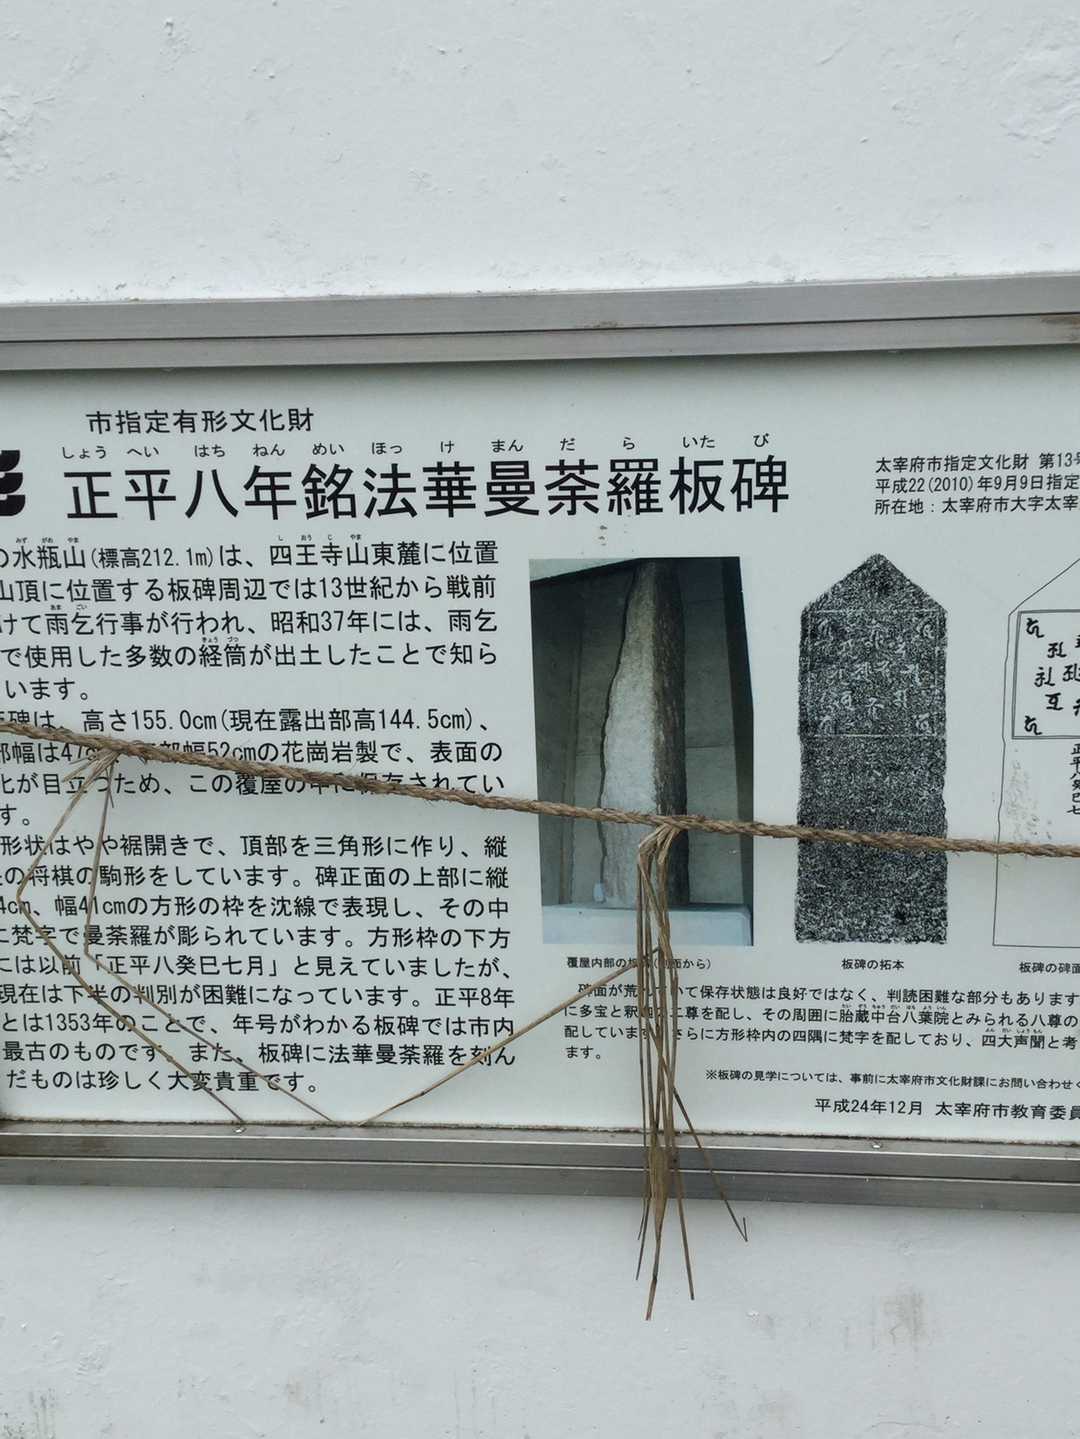 市指定有形文化財
しょう へい はち ねん めい ほっ け まん だ ら いた び
正平八年銘法華曼荼羅板碑
太宰府市指定文化財 第13号
平成22(2010)年9月9日指定
所在地：太宰府市大字太宰
みず がめ やま し おう じ やま
の水瓶山(標高212.1m)は、四王寺山東麓に位置
山頂に位置する板碑周辺では13世紀から戦前
あま ごい
けて雨乞行事が行われ、昭和37年には、雨乞
きょう づつ
で使用した多数の経筒が出土したことで知ら
います。
碑は、高さ155.0cm(現在露出部高144.5cm)、
部幅は47 部幅52cmの花崗岩製で、表面の
化が目立つため、この覆屋の中に保存されてい
す。
形状はやや裾開きで、頂部を三角形に作り、縦
の将棋の駒形をしています。碑正面の上部に縦
4cm、幅41cmの方形の枠を沈線で表現し、その中
に梵字で曼荼羅が彫られています。方形枠の下方
には以前「正平八癸巳七月」と見えていましたが、
現在は下半の判別が困難になっています。正平8年
とは1353年のことで、年号がわかる板碑では市内
最古のものです。また、板碑に法華曼荼羅を刻ん
だものは珍しく大変貴重です。
正平八癸巳七
覆屋内部の板碑(側面から)
板碑の拓本
板碑の碑面
碑面が荒れていて保存状態は良好ではなく、判読困難な部分もあります
たい ぞう ちゅう だい はち よう いん
に多宝と釈迦の二尊を配し、その周囲に胎蔵中台八葉院とみられる八尊の
よん だい しょう もん
配しています。さらに方形枠内の四隅に梵字を配しており、四大声聞と考
ます。
※板碑の見学については、事前に太宰府市文化財課にお問い合わせく
平成24年12月 太宰府市教育委員